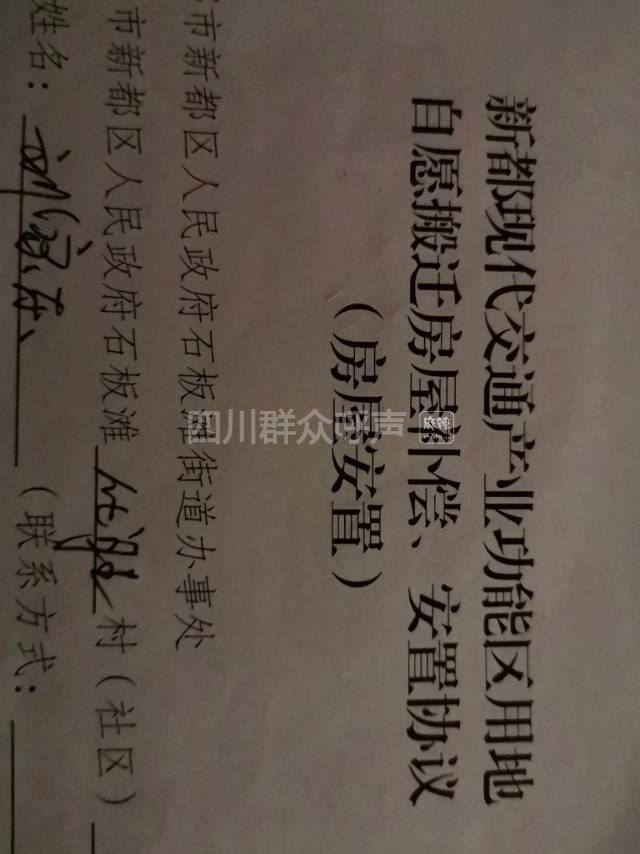 新都现代交通产业功能区用地
自愿搬迁房屋补偿、安置协议
（房屋安置）
市新都区人民政府石板滩街道办事处
市新都区人民政府石板滩 村（社区）
姓名： （联系方式：
四川群众呼声
麻辣